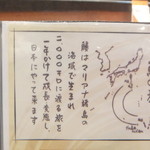 鰻はマリアナ諸島の
海域で生まれ
二〇〇〇キロに渡る旅を
一年かけて成長、変態し
日本にやって来ます